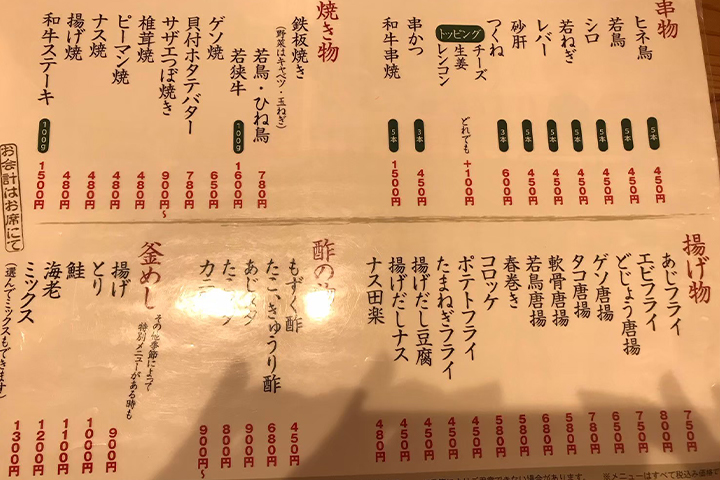 串物
ヒネ鳥 5本 450円
若鳥 5本 450円
シロ 5本 450円
若ねぎ 5本 450円
レバー 5本 450円
砂肝 5本 450円
つくね 3本 600円
トッピング チーズ
生姜 どれでも +100円
レンコン
串かつ 3本 450円
和牛串焼 5本 1500円
焼き物
鉄板焼き
(野菜はキャベツ・玉ねぎ)
若鳥・ひね鳥 780円
若狭牛 100g 1600円
ゲソ焼 650円
貝付ホタテバター 780円
サザエつぼ焼き 900円〜
椎茸焼 480円
ピーマン焼 480円
ナス焼 480円
揚げ焼 480円
和牛ステーキ 100g 1500円
お会計はお席にて
揚げ物
あじフライ 750円
エビフライ 800円
どじょう唐揚 750円
ゲソ唐揚 650円
タコ唐揚 780円
軟骨唐揚 680円
若鳥唐揚 580円
春巻き 580円
コロッケ 580円
ポテトフライ 450円
たまねぎフライ 450円
揚げだし豆腐 450円
揚げだしナス 450円
ナス田楽 480円
酢の物
もずく酢 450円
たこ、きゅうり酢 680円
あじ 900円
800円
カニ 900円〜
釜めし その他季節によって
特別メニューがある時も
揚げ 900円
とり 1000円
鮭 1100円
海老 1200円
ミックス 1300円
(選んでミックスもできます)
できない場合があります。
※メニューはすべて税込み価格